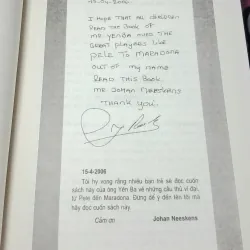 15-04-2006
I HOPE THAT ALL
READ THE BOOK OF
MR. YENBA AND THE
GREAT PLAYERS LIKE
PELE TO MARADONA
OUT OF MY NAME
READ THIS BOOK
MR. JOHAN NEESKENS
THANK YOU.
15-4-2006
Tôi hy vọng rằng nhiều bạn trẻ sẽ đọc cuốn
sách này của ông Yên Ba về những cầu thủ vĩ đại,
từ Pele đến Maradona. Đừng để ý đến tên tôi mà
hãy đọc cuốn sách này.
Cảm ơn
Johan Neeskens